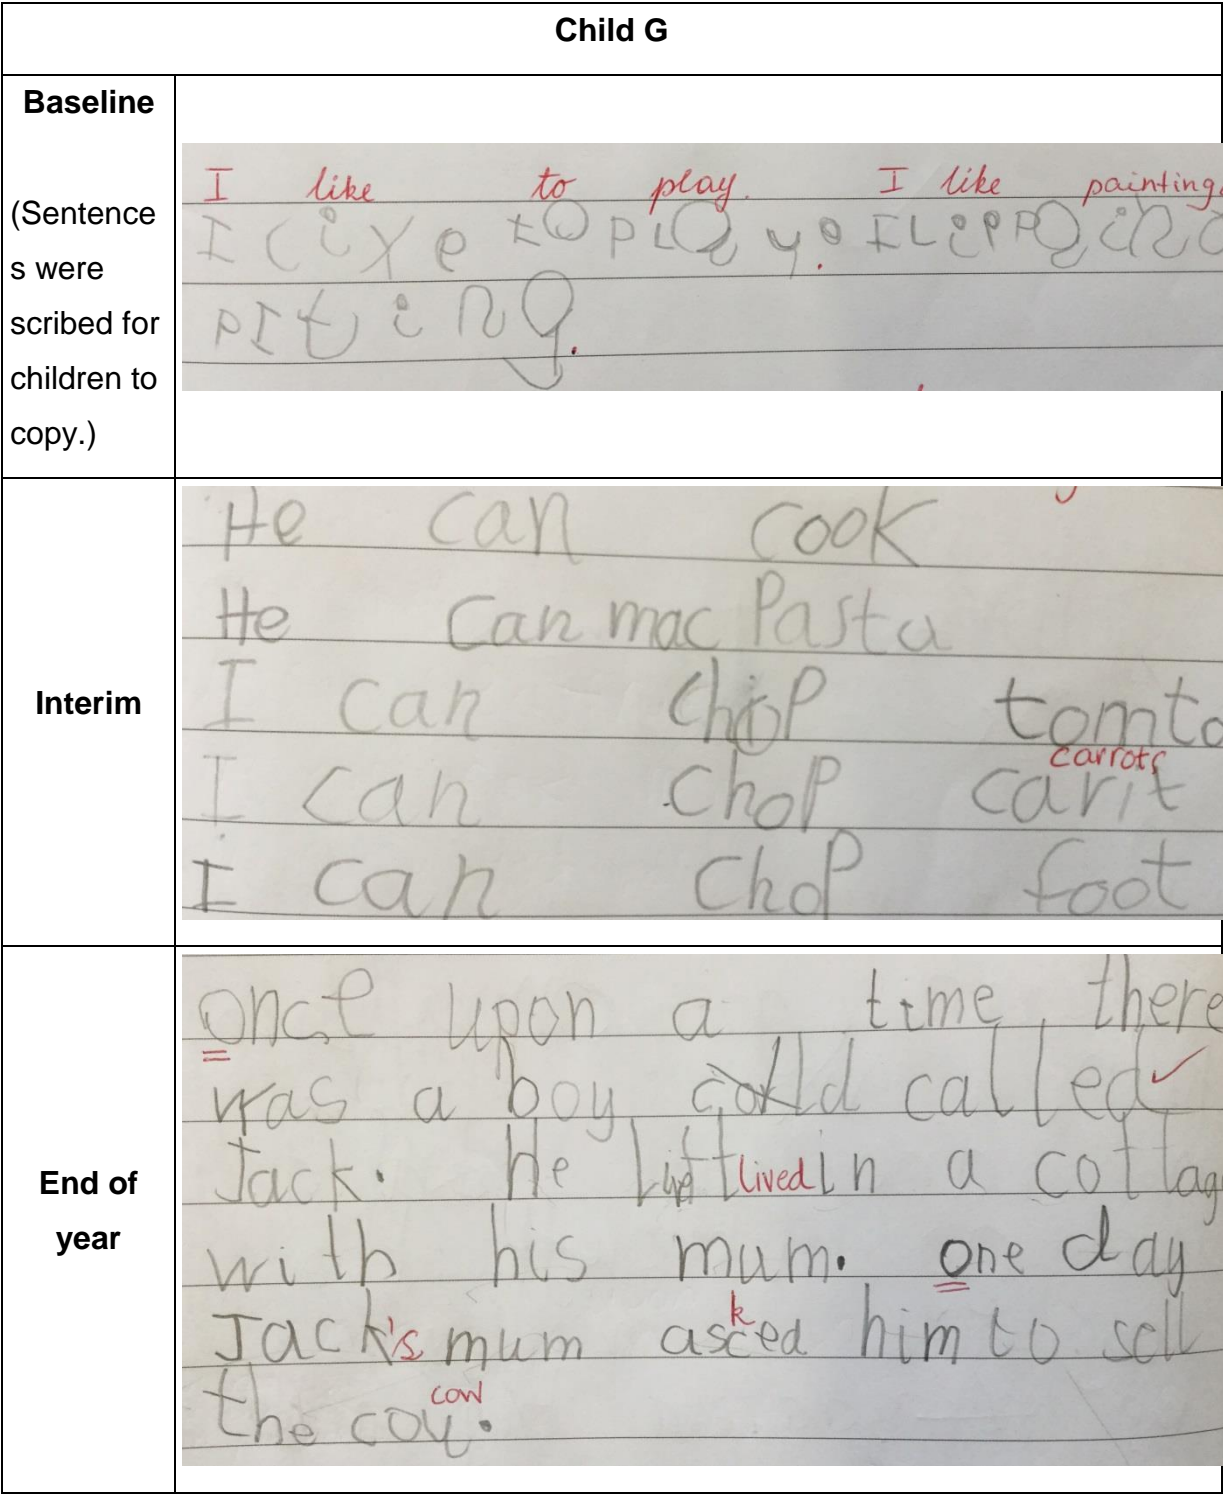 Child G
Baseline
(Sentence
s were
scribed for
children to
copy.)
I like to play. I like painting
I l i y e t o p L a y . I L i P P a i n
p I t i n g .
Interim
He can cook
He can mac Pasta
I can chop tomto
carrots
I can chop carit
I can chop foot
End of
year
once upon a time there
was a boy called
Jack. He lived in a cottag
with his mum. one day
k
Jack's mum asced him to sell
cow
the coy.